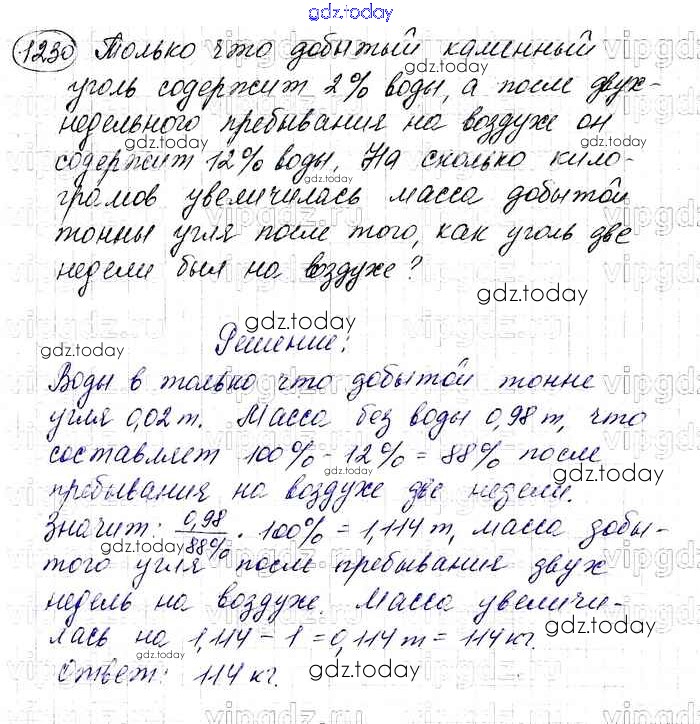 gdz.today
1230 Только что добытый каменный
gdz.today
уголь содержит 2% воды, а после двух-
недельного пребывания на воздухе он
gdz.today
содержит 12% воды. На сколько кило-
gdz.today
граммов увеличилась масса добытой
тонны угля после того, как уголь две
недели был на воздухе?
gdz.today
gdz.today
Решение:
gdz.today
Воды в только что добытой тонне
угля 0,02 т. Масса без воды 0,98 т, что
составляет 100% - 12% = 88% после
gdz.today
пребывания на воздухе две недели.
Значит: 0,98/88% · 100% = 1,114 т, масса добы-
gdz.today
того угля после пребывания двух
недель на воздухе. Масса увеличи-
лась на 1,114 - 1 = 0,114 т = 114 кг.
gdz.today
gdz.today
Ответ: 114 кг.
gdz.today
vipgdz.ru